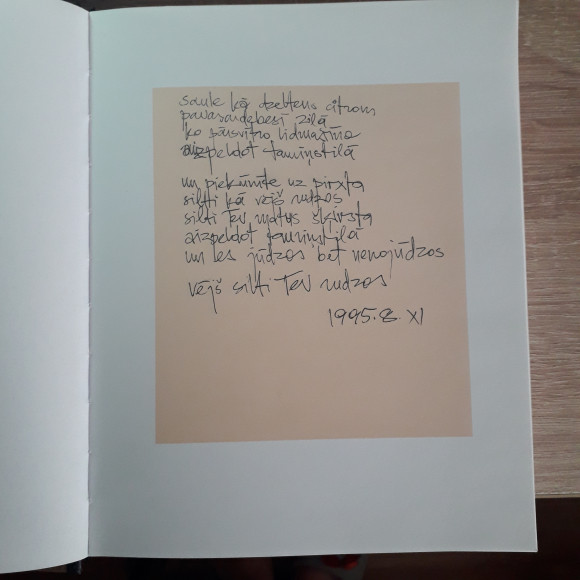 saule kā dzeltens citrons
pavasardebesī zilā
ko pāršvītro lidmašīna
aizpeldot tauriņstilā
un piekūnīte uz pirksta
silti kā vējš rudzos
silti Tev matus šķirsta
aizpeldot tauriņstilā
un les jūdzos bet nenojūdzos
vējš silti Tev rudzos
1995.8.XI